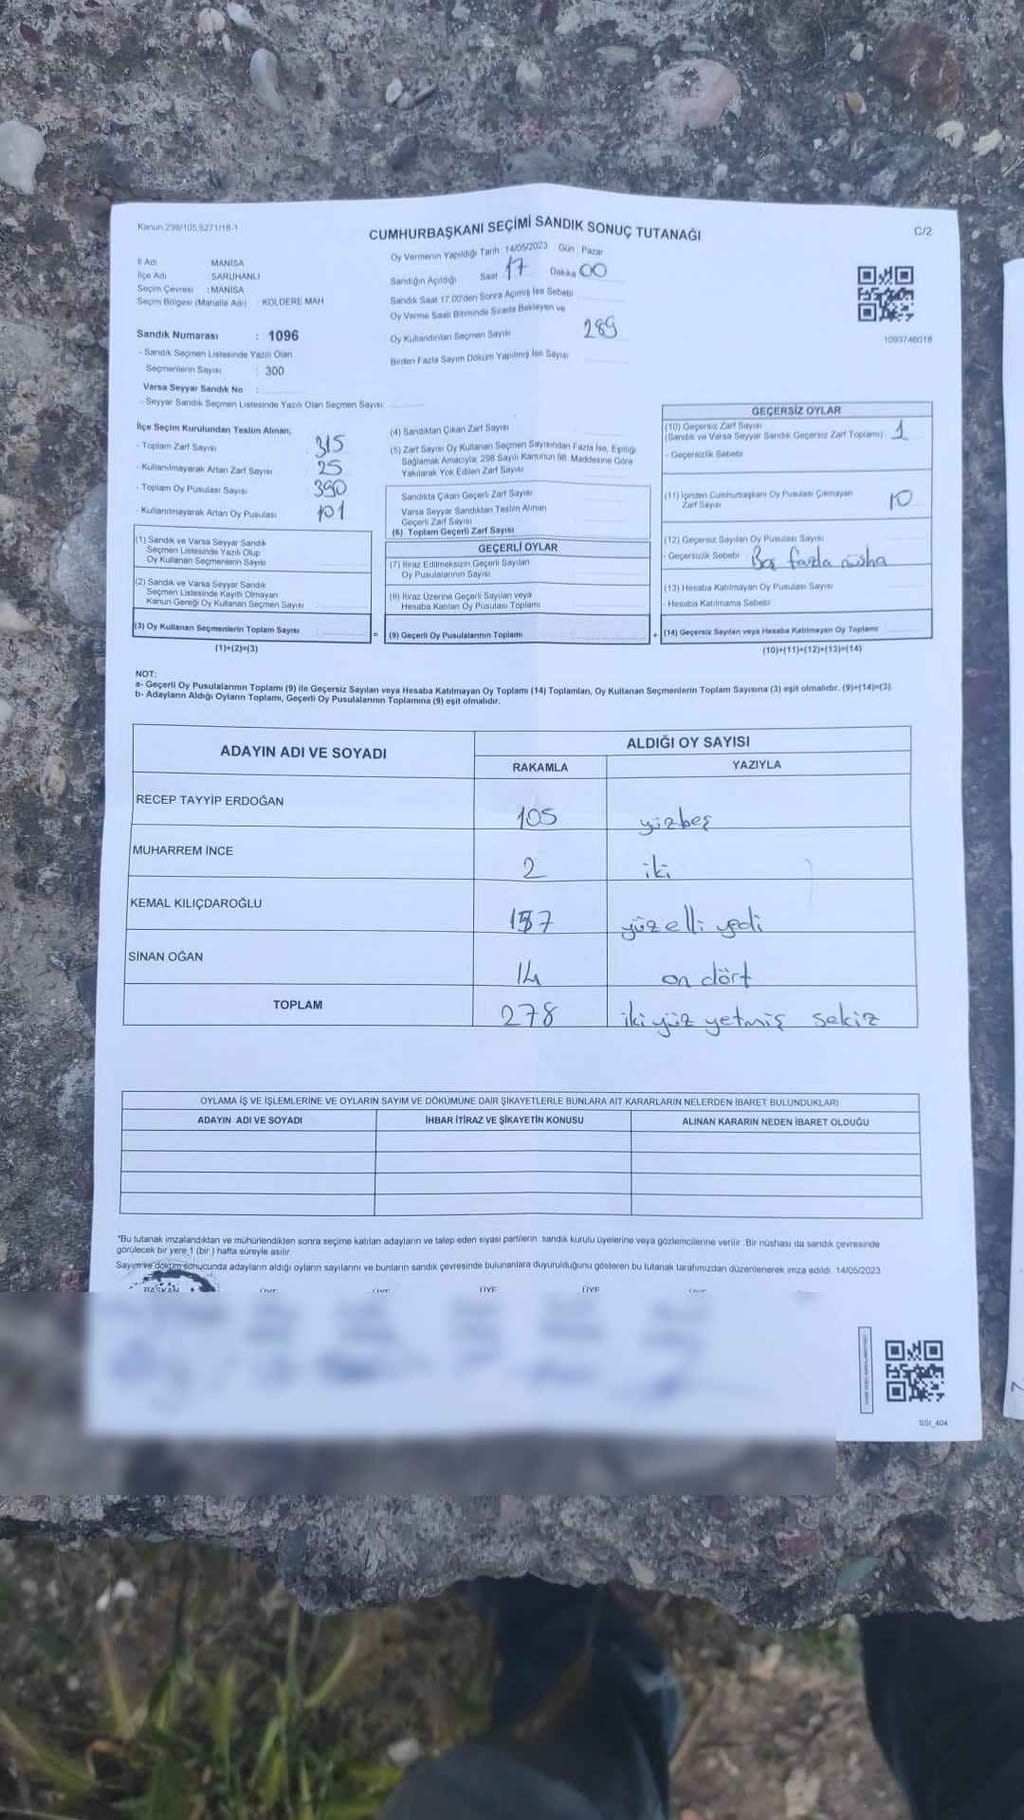 Kanun 298/105,6271/18-1
CUMHURBAŞKANI SEÇİMİ SANDIK SONUÇ TUTANAĞI
C/2
İl Adı MANİSA
İlçe Adı SARUHANLI
Seçim Çevresi : MANİSA
Seçim Bölgesi (Mahalle Adı) KOLDERE MAH
Sandık Numarası : 1096
- Sandık Seçmen Listesinde Yazılı Olan
Seçmenlerin Sayısı 300
Varsa Seyyar Sandık No :
- Seyyar Sandık Seçmen Listesinde Yazılı Olan Seçmen Sayısı:
Oy Vermenin Yapıldığı Tarih 14/05/2023 Gün Pazar
Sandığın Açıldığı Saat 17 Dakika 00
Sandık Saat 17.00'den Sonra Açılmış İse Sebebi
Oy Verme Saati Bitiminde Sırada Bekleyen ve
Oy Kullandırılan Seçmen Sayısı 289
Birden Fazla Sayım Döküm Yapılmış İse Sayısı
1093746016
İlçe Seçim Kurulundan Teslim Alınan;
- Toplam Zarf Sayısı 315
- Kullanılmayarak Artan Zarf Sayısı 25
- Toplam Oy Pusulası Sayısı 390
- Kullanılmayarak Artan Oy Pusulası 101
(1) Sandık ve Varsa Seyyar Sandık
Seçmen Listesinde Yazılı Olup
Oy Kullanan Seçmenlerin Sayısı
(2) Sandık ve Varsa Seyyar Sandık
Seçmen Listesinde Kayıtlı Olmayan
Kanun Gereği Oy Kullanan Seçmen Sayısı
(3) Oy Kullanan Seçmenlerin Toplam Sayısı
(1)+(2)=(3)
=
(4) Sandıktan Çıkan Zarf Sayısı
(5) Zarf Sayısı Oy Kullanan Seçmen Sayısından Fazla İse, Eşitliği
Sağlamak Amacıyla, 298 Sayılı Kanunun 98. Maddesine Göre
Yakılarak Yok Edilen Zarf Sayısı
Sandıkta Çıkan Geçerli Zarf Sayısı
Varsa Seyyar Sandıktan Teslim Alınan
Geçerli Zarf Sayısı
(6) Toplam Geçerli Zarf Sayısı
GEÇERLİ OYLAR
(7) İtiraz Edilmeksizin Geçerli Sayılan
Oy Pusulalarının Sayısı
(8) İtiraz Üzerine Geçerli Sayılan veya
Hesaba Katılan Oy Pusulası Toplamı
(9) Geçerli Oy Pusulalarının Toplamı
+
GEÇERSİZ OYLAR
(10) Geçersiz Zarf Sayısı
(Sandık ve Varsa Seyyar Sandık Geçersiz Zarf Toplamı) 1
- Geçersizlik Sebebi
(11) İçinden Cumhurbaşkanı Oy Pusulası Çıkmayan
Zarf Sayısı 10
(12) Geçersiz Sayılan Oy Pusulası Sayısı
- Geçersizlik Sebebi Boş fazla nüsha
(13) Hesaba Katılmayan Oy Pusulası Sayısı
- Hesaba Katılmama Sebebi
(14) Geçersiz Sayılan veya Hesaba Katılmayan Oy Toplamı
(10)+(11)+(12)+(13)=(14)
NOT:
a- Geçerli Oy Pusulalarının Toplamı (9) ile Geçersiz Sayılan veya Hesaba Katılmayan Oy Toplamı (14) Toplamları, Oy Kullanan Seçmenlerin Toplam Sayısına (3) eşit olmalıdır. (9)+(14)=(3)
b- Adayların Aldığı Oyların Toplamı, Geçerli Oy Pusulalarının Toplamına (9) eşit olmalıdır.
ADAYIN ADI VE SOYADI
ALDIĞI OY SAYISI
RAKAMLA YAZIYLA
RECEP TAYYİP ERDOĞAN 105 yüzbeş
MUHARREM İNCE 2 iki
KEMAL KILIÇDAROĞLU 157 yüzelli yedi
SİNAN OĞAN 14 on dört
TOPLAM 278 iki yüz yetmiş sekiz
OYLAMA İŞ VE İŞLEMLERİNE VE OYLARIN SAYIM VE DÖKÜMÜNE DAİR ŞİKAYETLERLE BUNLARA AİT KARARLARIN NELERDEN İBARET BULUNDUKLARI
ADAYIN ADI VE SOYADI İHBAR İTİRAZ VE ŞİKAYETİN KONUSU ALINAN KARARIN NEDEN İBARET OLDUĞU
"Bu tutanak imzalandıktan ve mühürlendikten sonra seçime katılan adayların ve talep eden siyasi partilerin sandık kurulu üyelerine veya gözlemcilerine verilir. Bir nüshası da sandık çevresinde
görülecek bir yere 1 (bir ) hafta süreyle asılır.
Sayım ve döküm sonucunda adayların aldığı oyların sayılarını ve bunların sandık çevresinde bulunanlara duyurulduğunu gösteren bu tutanak tarafımızdan düzenlenerek imza edildi. 14/05/2023
BAŞKAN ÜYE ÜYE ÜYE ÜYE ÜYE
SSt_404